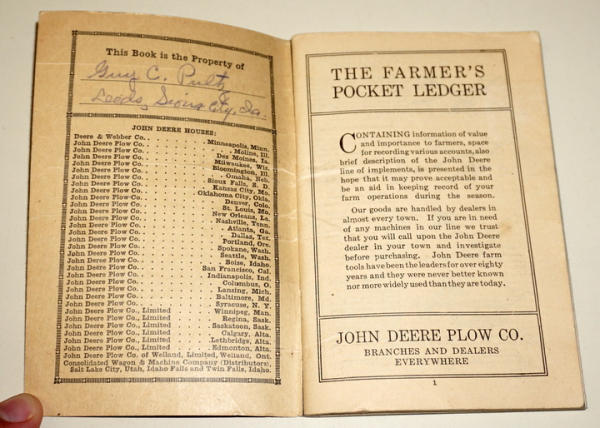 This Book is the Property of
Guy C. Pultz
Leeds, Sioux City, Ia.
JOHN DEERE HOUSES:
Deere & Webber Co. . . . . Minneapolis, Minn.
John Deere Plow Co. . . . . Moline, Ill.
John Deere Plow Co. . . . . Des Moines, Ia.
John Deere Plow Co. . . . . Milwaukee, Wis.
John Deere Plow Co. . . . . Bloomington, Ill.
John Deere Plow Co. . . . . Omaha, Neb.
John Deere Plow Co. . . . . Sioux Falls, S. D.
John Deere Plow Co. . . . . Kansas City, Mo.
John Deere Plow Co. . . . . Oklahoma City, Okla.
John Deere Plow Co. . . . . Denver, Colo.
John Deere Plow Co. . . . . St. Louis, Mo.
John Deere Plow Co. . . . . New Orleans, La.
John Deere Plow Co. . . . . Nashville, Tenn.
John Deere Plow Co. . . . . Atlanta, Ga.
John Deere Plow Co. . . . . Dallas, Tex.
John Deere Plow Co. . . . . Portland, Ore.
John Deere Plow Co. . . . . Spokane, Wash.
John Deere Plow Co. . . . . Seattle, Wash.
John Deere Plow Co. . . . . Boise, Idaho.
John Deere Plow Co. . . . . San Francisco, Cal.
John Deere Plow Co. . . . . Indianapolis, Ind.
John Deere Plow Co. . . . . Columbus, O.
John Deere Plow Co. . . . . Lansing, Mich.
John Deere Plow Co. . . . . Baltimore, Md.
John Deere Plow Co. . . . . Syracuse, N. Y.
John Deere Plow Co., Limited . . . . Winnipeg, Man.
John Deere Plow Co., Limited . . . . Regina, Sask.
John Deere Plow Co., Limited . . . . Saskatoon, Sask.
John Deere Plow Co., Limited . . . . Calgary, Alta.
John Deere Plow Co., Limited . . . . Lethbridge, Alta.
John Deere Plow Co., Limited . . . . Edmonton, Alta.
John Deere Plow Co. of Welland, Limited, Welland, Ont.
Consolidated Wagon & Machine Company (Distributors),
Salt Lake City, Utah, Idaho Falls and Twin Falls, Idaho.
THE FARMER'S
POCKET LEDGER
CONTAINING information of value
and importance to farmers, space
for recording various accounts, also
brief description of the John Deere
line of implements, is presented in the
hope that it may prove acceptable and
be an aid in keeping record of your
farm operations during the season.
Our goods are handled by dealers in
almost every town. If you are in need
of any machines in our line we trust
that you will call upon the John Deere
dealer in your town and investigate
before purchasing. John Deere farm
tools have been the leaders for over eighty
years and they were never better known
nor more widely used than they are today.
JOHN DEERE PLOW CO.
BRANCHES AND DEALERS
EVERYWHERE
1